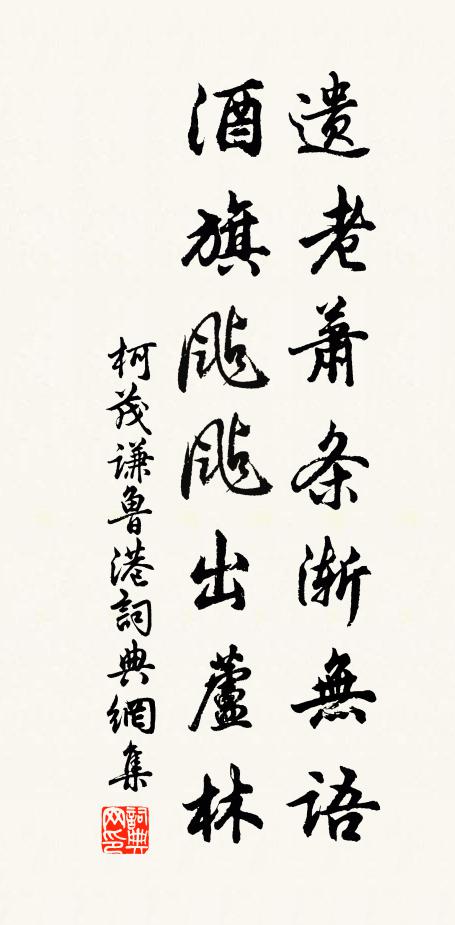 遗老萧条渐無語
酒旗飐飐出蘆林
柯茂谦魯港詞典網集
詞典网印